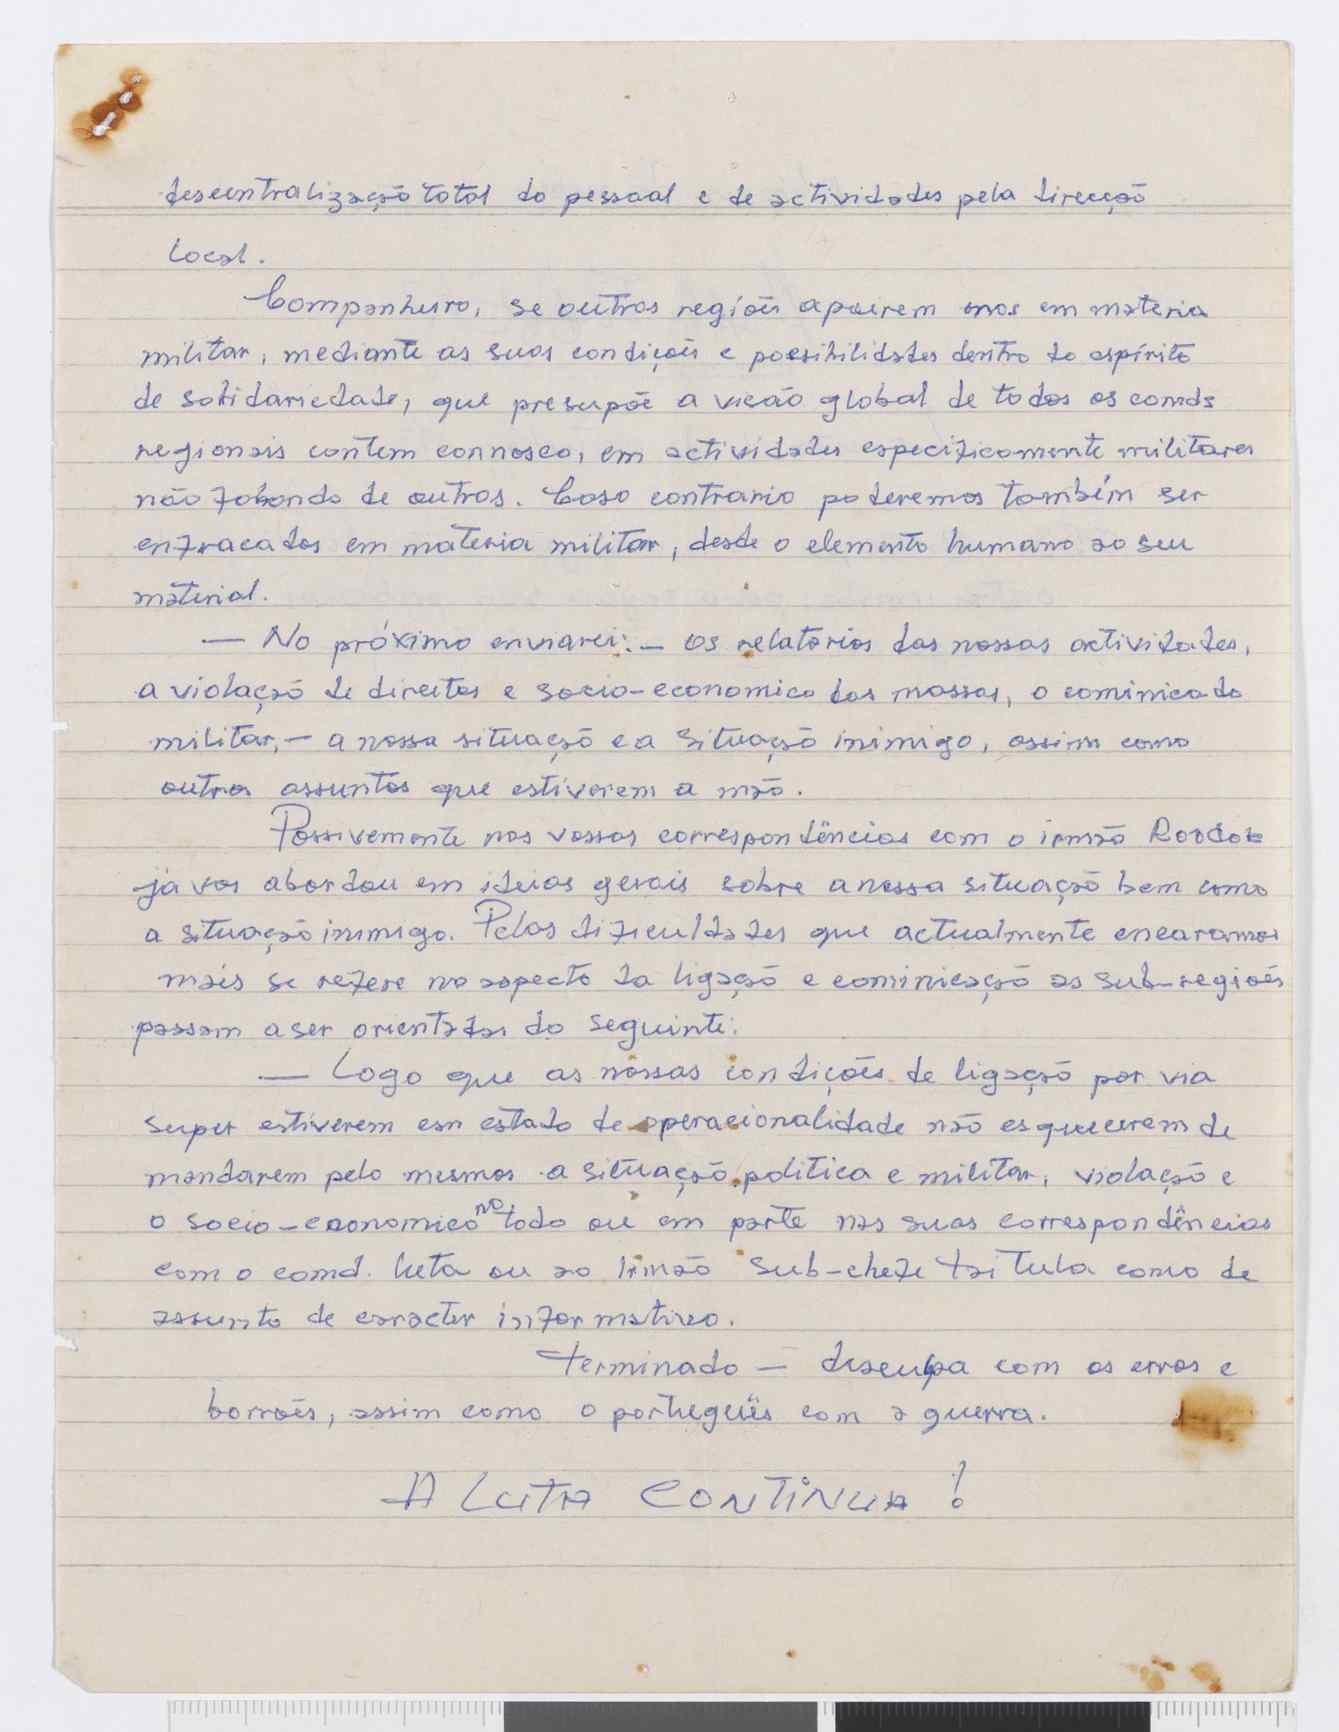 descentralização total do pessoal e de actividades pela direcção
local.
Companheiro, se outras regiões apoiarem nos em materia
militar, mediante as suas condições e possibilidades dentro do espírito
de solidariedade, que presupõe a visão global de todos os comds
regionais contem connosco, em actividades especificamente militares
não falando de outros. Caso contrario poderemos também ser
enfracados em materia militar, desde o elemento humano ao seu
material.
— No próximo enviarei: — os relatorios das nossas actividades,
a violação de direitos e socio-economico das massas, o cominicado
militar, — a nossa situação e a situação inimigo, assim como
outros assuntos que estiverem a mão.
Possivemente nas vossas correspondências com o irmão
já vos abordou em ideias gerais sobre a nossa situação bem como
a situação inimigo. Pelas dificuldades que actualmente encaramos
mais se refere no aspecto da ligação e cominicação as sub-regiões
passam a ser orientadas do seguinte:
— Logo que as nossas condições de ligação por via
super estiverem em estado de operacionalidade não esquecerem de
mandarem pelo mesmos a situação politica e militar, violação e
o socio-economico no todo ou em parte nas suas correspondências
com o comd. Luta ou ao irmão Sub-chefe Tai Tula como de
assunto de caracter informativo.
Terminado — desculpa com os erros e
borrões, assim como o portuguüês com a guerra.
A LUTA CONTINUA!